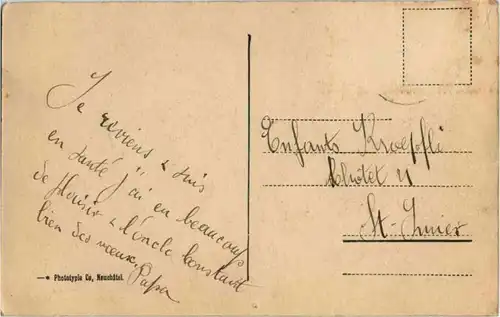 Je reviens & suis
en santé j'ai eu beaucoup
de plaisir & l'oncle Constant
bien des vœux. Papa
Phototypie Co, Neuchâtel.
Enfants Kraepfli
11
St-Imier